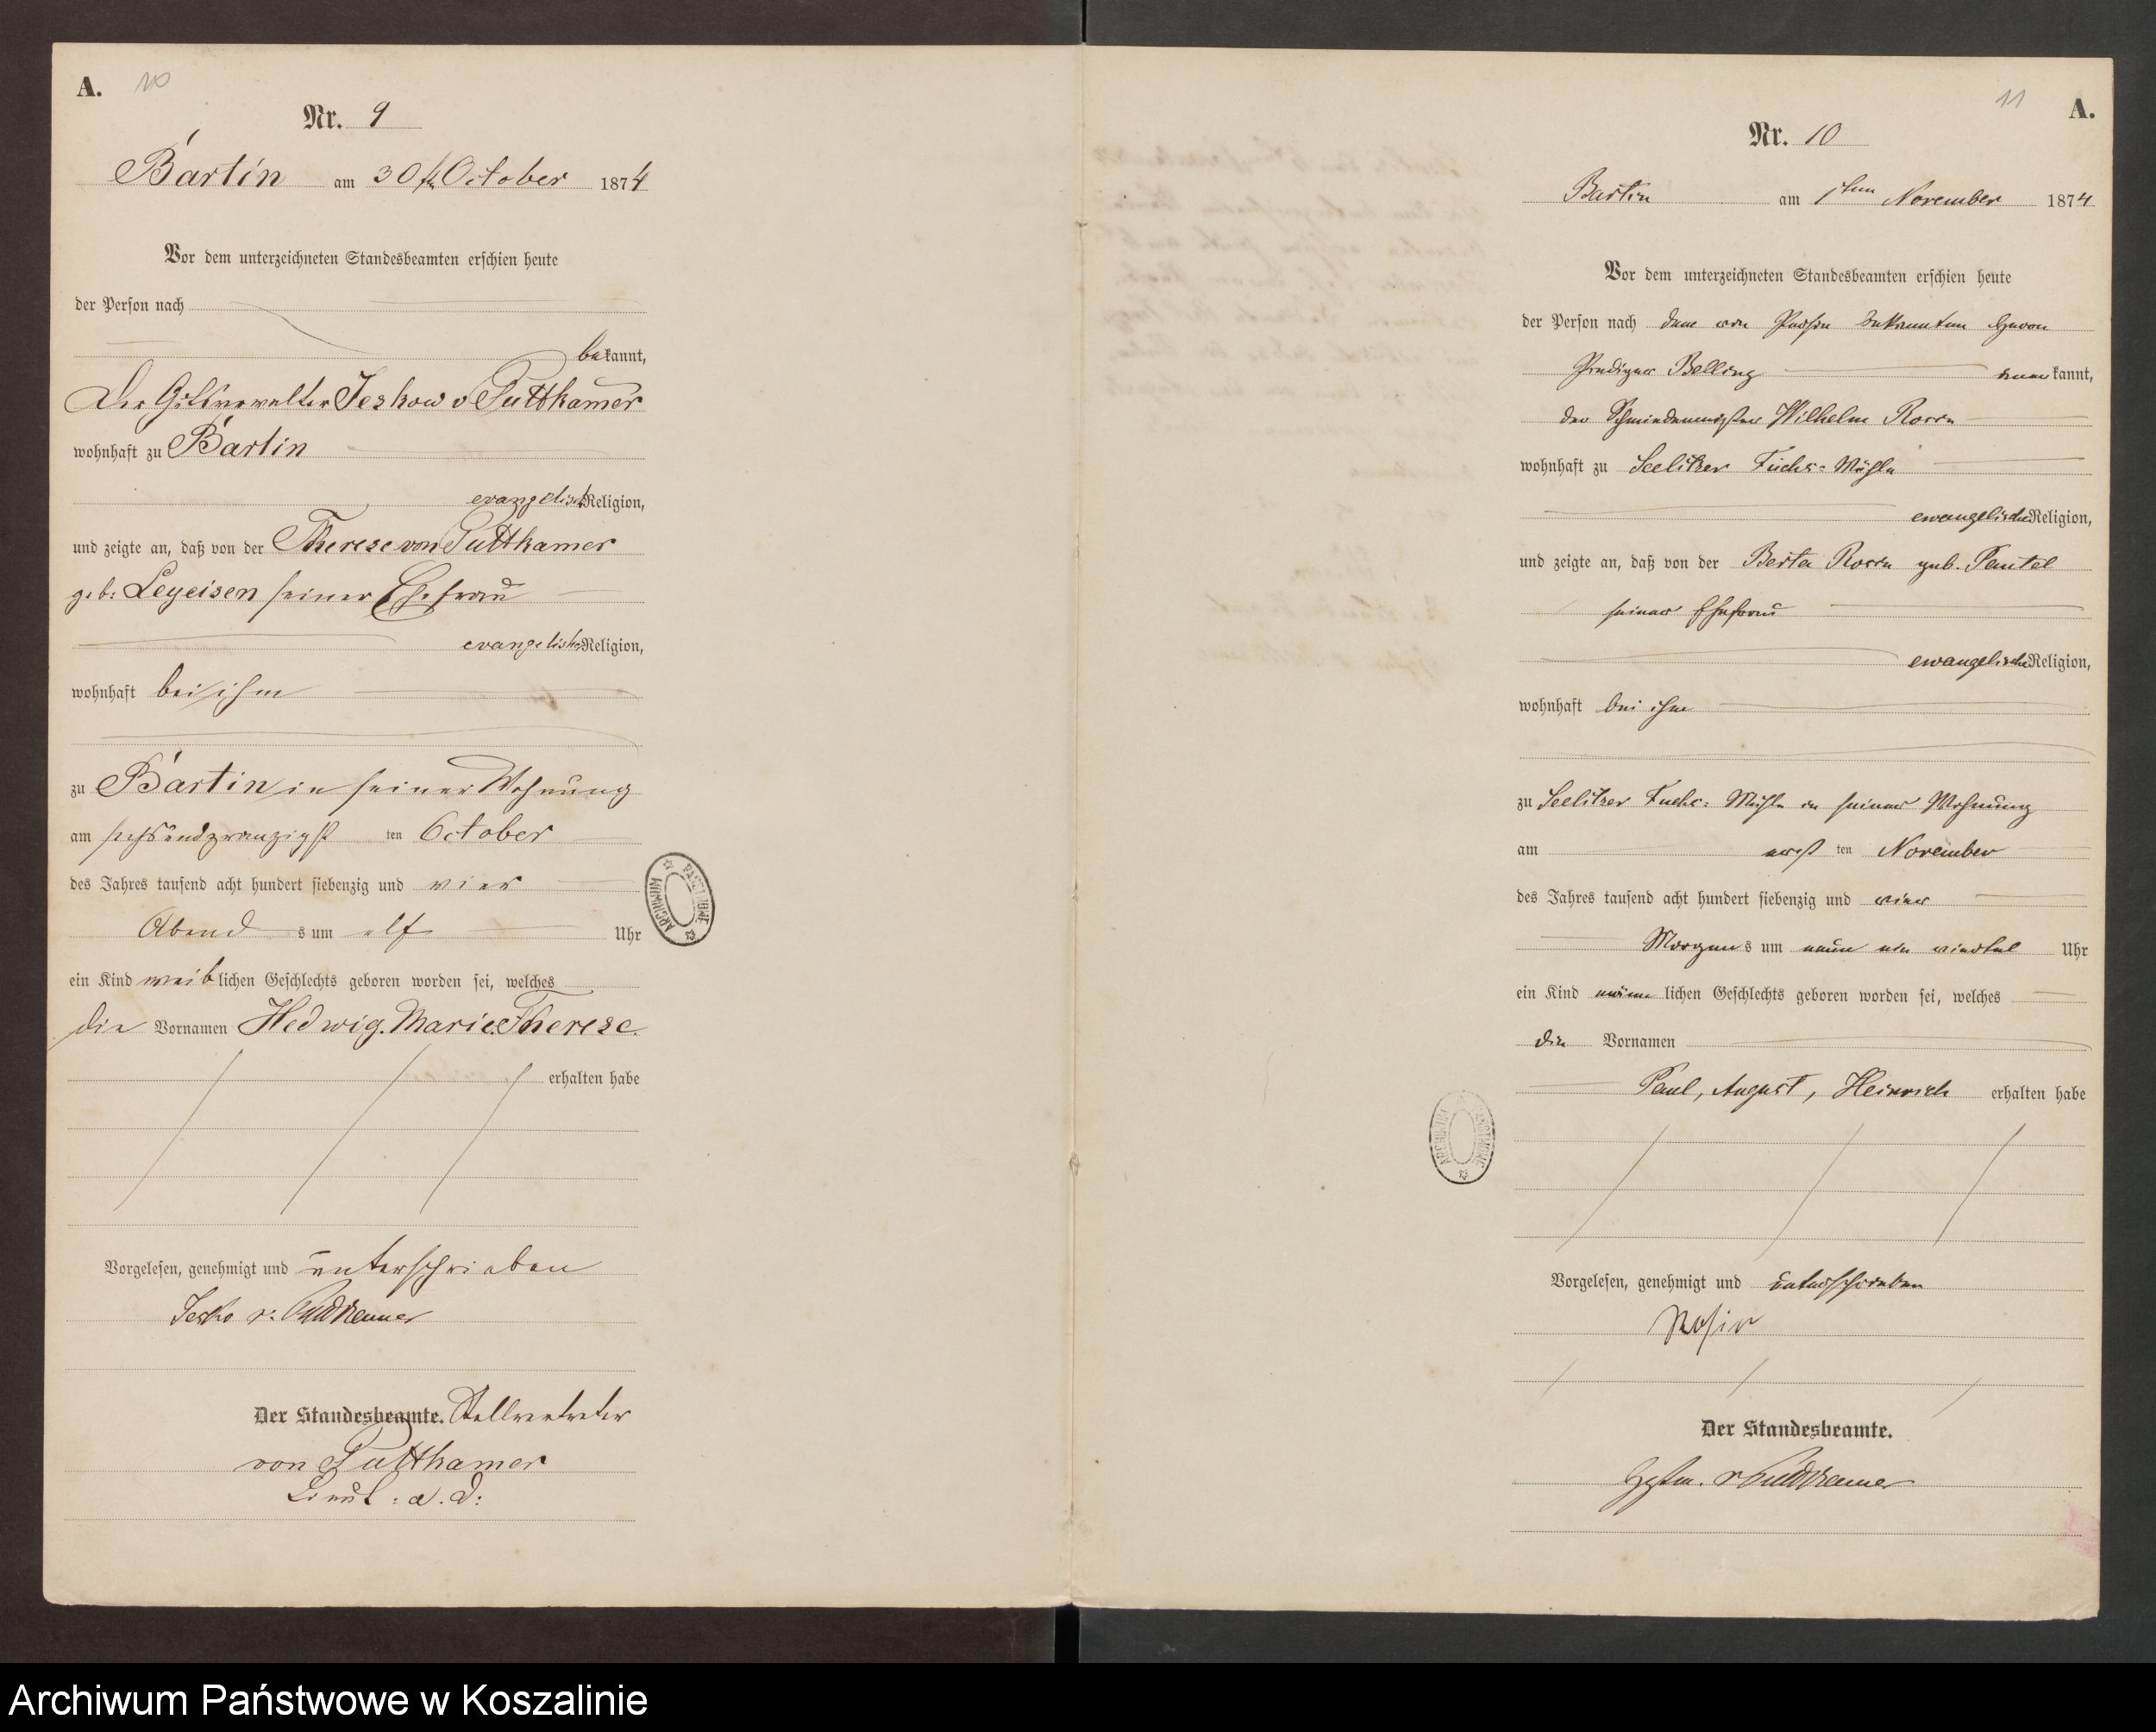 A.
10
Nr. 9
Bartin am 30t October 1874
Vor dem unterzeichneten Standesbeamten erschien heute
der Person nach
bekannt,
Der Gutsverwalter Jeskow v Puttkamer
wohnhaft zu Bartin
evangelisch Religion,
und zeigte an, daß von der Therese von Puttkamer
geb: Legeisen seiner Ehefrau
evangelisch Religion,
wohnhaft bei ihm
zu Bartin in seiner Wohnung
am sechsundzwanzigst ten October
des Jahres tausend acht hundert siebenzig und vier
Abend s um elf Uhr
ein Kind weib lichen Geschlechts geboren worden sei, welches
die Vornamen Hedwig. Marie. Therese.
erhalten habe
Vorgelesen, genehmigt und unterschrieben
Jesko v: Puttkamer
Der Standesbeamte. Stellvertreter
von Puttkamer
Lieut: a. D:
ARCHIWUM PAŃSTWOWE
11
A.
Nr. 10
Bartin am 1ten November 1874
Vor dem unterzeichneten Standesbeamten erschien heute
der Person nach den von Person bekannten Herrn
Prediger Belling kannt,
der Schmiedemeister Wilhelm
wohnhaft zu Seelitzer Fuchs-Mühle
ewangelische Religion,
und zeigte an, daß von der Berta geb. Pautel
seiner Ehefrau
ewangelische Religion,
wohnhaft bei ihm
zu Seelitzer Fuchs-Mühle in seiner Wohnung
am erst ten November
des Jahres tausend acht hundert siebenzig und vier
Morgen s um neun ein viertel Uhr
ein Kind männ lichen Geschlechts geboren worden sei, welches
die Vornamen
Paul, August, Heinrich erhalten habe
Vorgelesen, genehmigt und unterschrieben
Der Standesbeamte.
v Puttkamer
ARCHIWUM PAŃSTWOWE
Archiwum Państwowe w Koszalinie